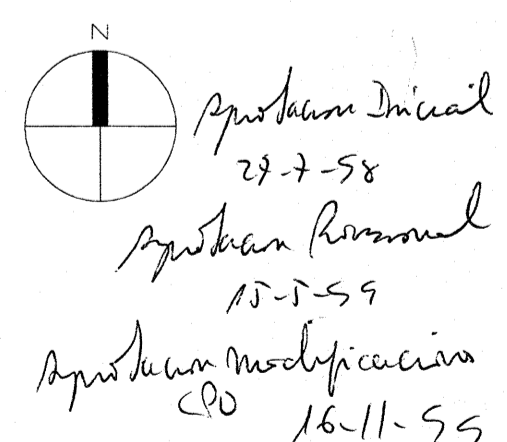 N
Aprobacion Inicial
29-7-98
Aprobacion Provisional
15-5-99
Aprobacion modificaciones
CPU
16-11-99